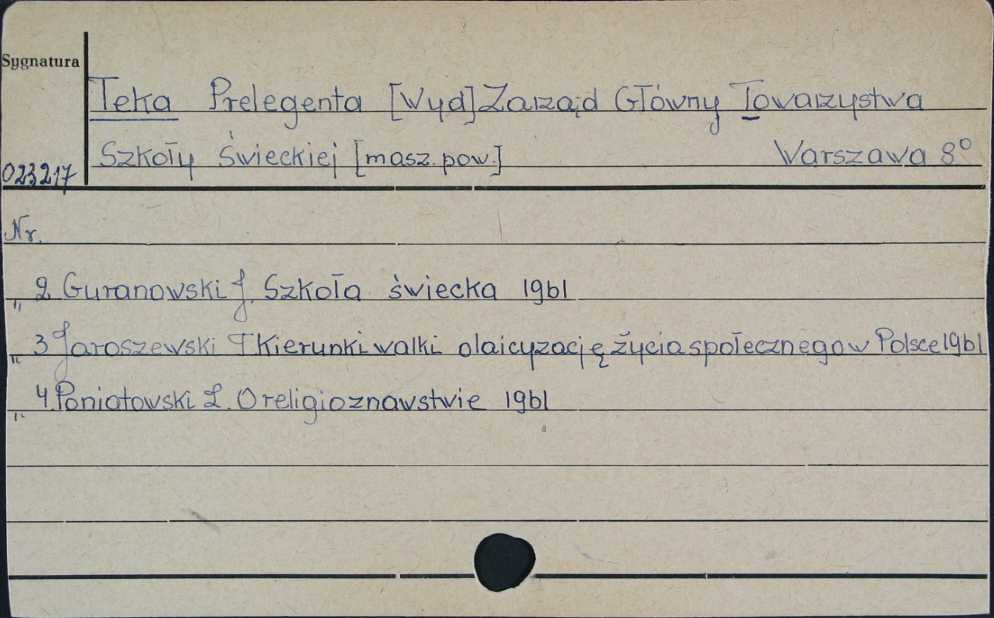 Sygnatura
Teka Prelegenta [Wyd] Zarząd Główny Towarzystwa
Szkoły Świeckiej [masz. pow.] Warszawa 8°
023217
Nr.
" 2 Guranowski J. Szkoła świecka 1961
" 3 Jaroszewski T Kierunki walki o laicyzację życia społecznego w Polsce 1961
" 4. Poniatowski Z. O religioznawstwie 1961